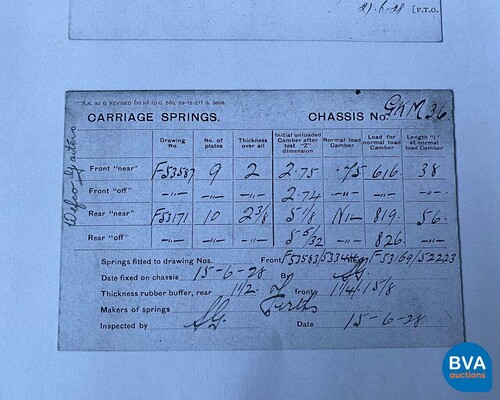 21-6-28 [P.T.O.
CARRIAGE SPRINGS. CHASSIS No. GKM 36.
Drawing No. No. of plates Thickness over all Initial unloaded Camber after test "Z" dimension Normal load Camber Load for normal load Camber Length "L" at normal load Camber
Front "near" F53587 9 2 2.75 .75 616 38
Front "off" -"- -"- -"- 2.74 -"- -"- -"-
Rear "near" F53171 10 2 3/8 5 1/8 Nil 819. 56.
Rear "off" -"- -"- -"- 5 5/32 -"- 826. -"-
Wefco Gaiters
Springs fitted to drawing Nos. Front F53583/ F53169/52223
Date fixed on chassis 15-6-28 By SG.
Thickness rubber buffer, rear 1 1/2. front 1 1/4. 1 5/8
Makers of springs Firths
Inspected by SG. Date 15-6-28
BVA
auctions